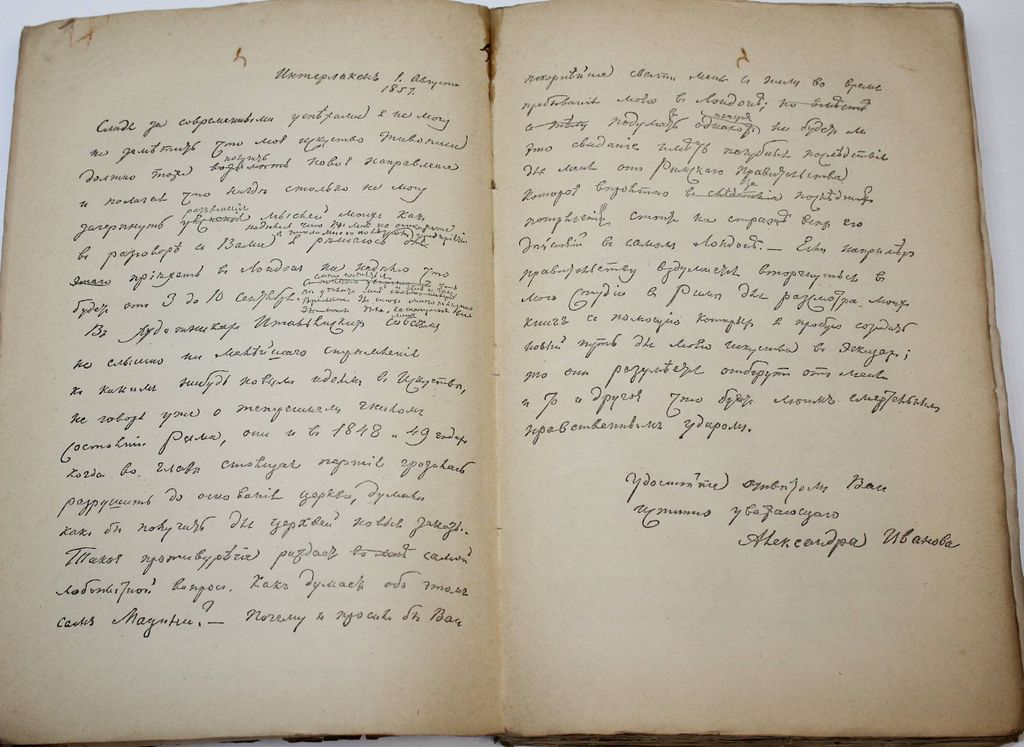 Интерлакенъ 1. Августа
1857.
Слѣдя за современными успѣхами я не могу
не замѣтить что мое искуство живописи
должно тоже получить новое направленіе
и полагая что нигдѣ столько не могу
зачерпнуть разъясненія мыслей моихъ какъ
въ разговорѣ съ Вами рѣшаюсь
пріѣхать въ Лондонъ на недѣлю что
будетъ отъ 3 до 10 Сентября.
Въ художникахъ Итальянскихъ совсѣмъ
не слышно ни малѣйшаго стремленія
къ какимъ нибудь новымъ идеямъ въ искуствѣ,
не говоря уже о теперешнемъ гниломъ
состояніи Рима, они и въ 1848 и 49 годахъ
когда во главѣ стоящая партія грозилась
разрушить до основанія церковь, думали
какъ бы получить для церквей новые заказы.
Такое противурѣчіе раждаетъ самой
любопытной вопросъ. Какъ думаетъ объ этомъ
самъ Мацини? — Почему я просилъ бы Васъ
покорнѣйше свести меня съ нимъ во время
пребыванія моего въ Лондонѣ; но
подумать однакоже не будетъ ли
это свиданіе имѣть пагубныя послѣдствія
для меня отъ Римскаго Правительства
которое вѣроятно въ послѣдніе
стоитъ на стражѣ всѣхъ его
дѣйствій въ самомъ Лондонѣ. — Если напримѣръ
правительству вздумается вторгнуться въ
мою студію въ Римѣ для разсмотра моихъ
книгъ съ помощію которыхъ я пробую создать
новый путь для моего искуства въ эскизахъ;
то они разумѣется отберутъ отъ меня
и то и другое что будетъ моимъ смертельнымъ
нравственнымъ ударомъ.
Удостойте отвѣтомъ Васъ
истинно уважающаго
Александра Иванова